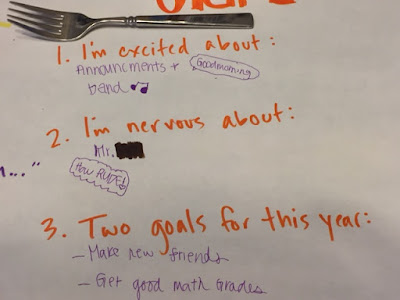 1. I'm excited about:
Announcments + Goodmorning
band
2. I'm nervous about:
Mr.
How RUDE!
..."
3. Two goals for this year:
- Make new friends
- Get good math Grades